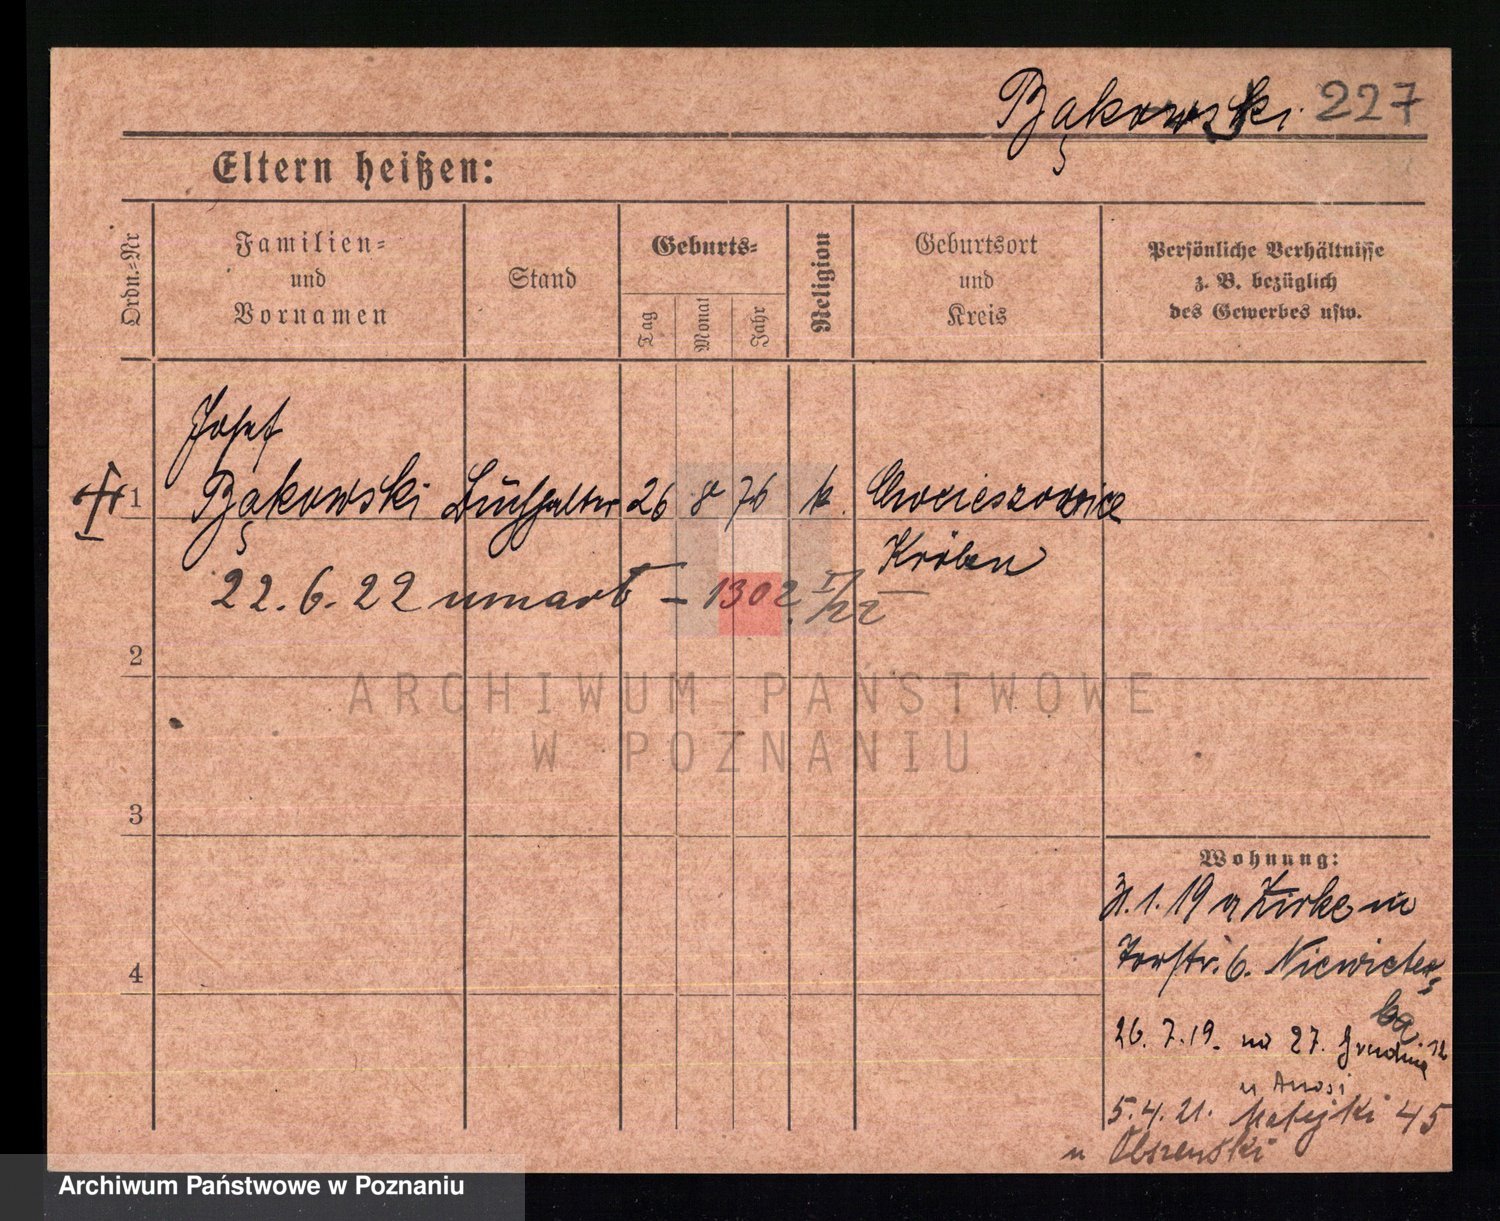 Bąkowski. 227
Eltern heißen:
Ordn.-Nr
Familien-
und
Vornamen
Stand
Geburts-
Tag
Monat
Jahr
Religion
Geburtsort
und
Kreis
Persönliche Verhältnisse
z. B. bezüglich
des Gewerbes usw.
Josef
1 Bąkowski Buchhalter 26 8 76 k. Chocieszewice
Kröben
22.6.22 umarł – 1302
2
ARCHIWUM PAŃSTWOWE
W POZNANIU
3
Wohnung:
31.1.19 Zirke
Torstr. 6.
4
26.7.19. na 27. Grudnia 12
5.4.21. Matejki 45
u
Archiwum Państwowe w Poznaniu